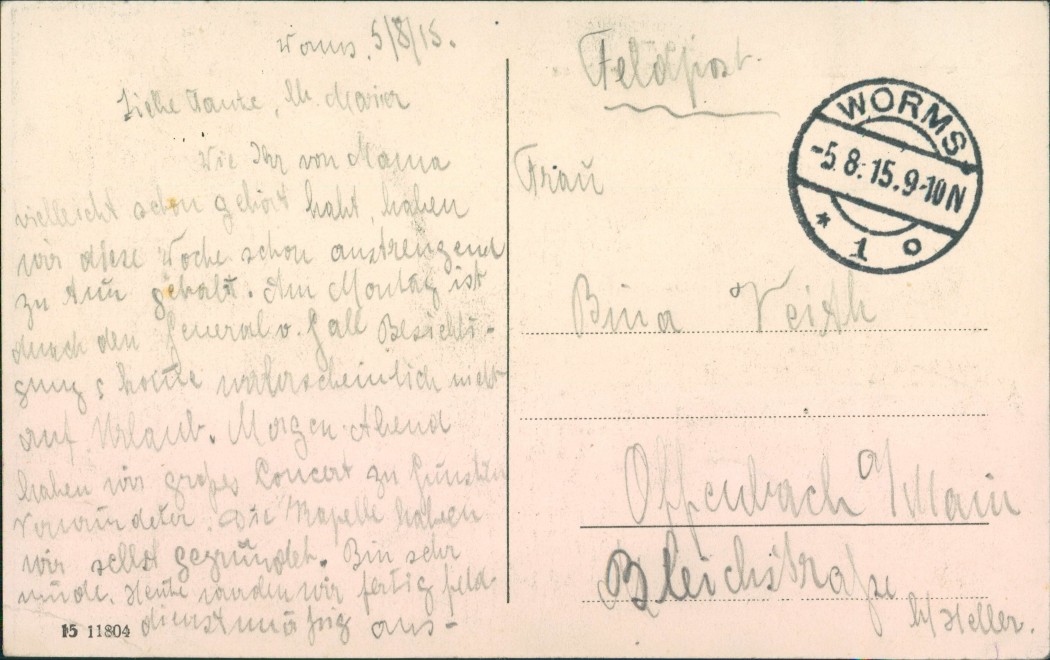 Worms, 5/8/15.
Liebe Tante, lb. Marier
Wie Ihr von Mama
vielleicht schon gehört habt, haben
wir diese Woche schon anstrengend
zu tun gehabt. Am Montag ist
durch den General v. Gall Besichti-
gung & heute wahrscheinlich nicht
auf Urlaub. Morgen Abend
haben wir großes Concert zu Gunsten
Verwundeter. Die Kapelle haben
wir selbst gegründet. Bin sehr
müde. Heute wurden wir fertig feld-
dienstmäßig aus-
15 11804
Feldpost.
WORMS
-5.8.15.9-10N
* 1 o
Frau
Bina Veith
Offenbach a/Main
Bleichstraße
b/Heller.